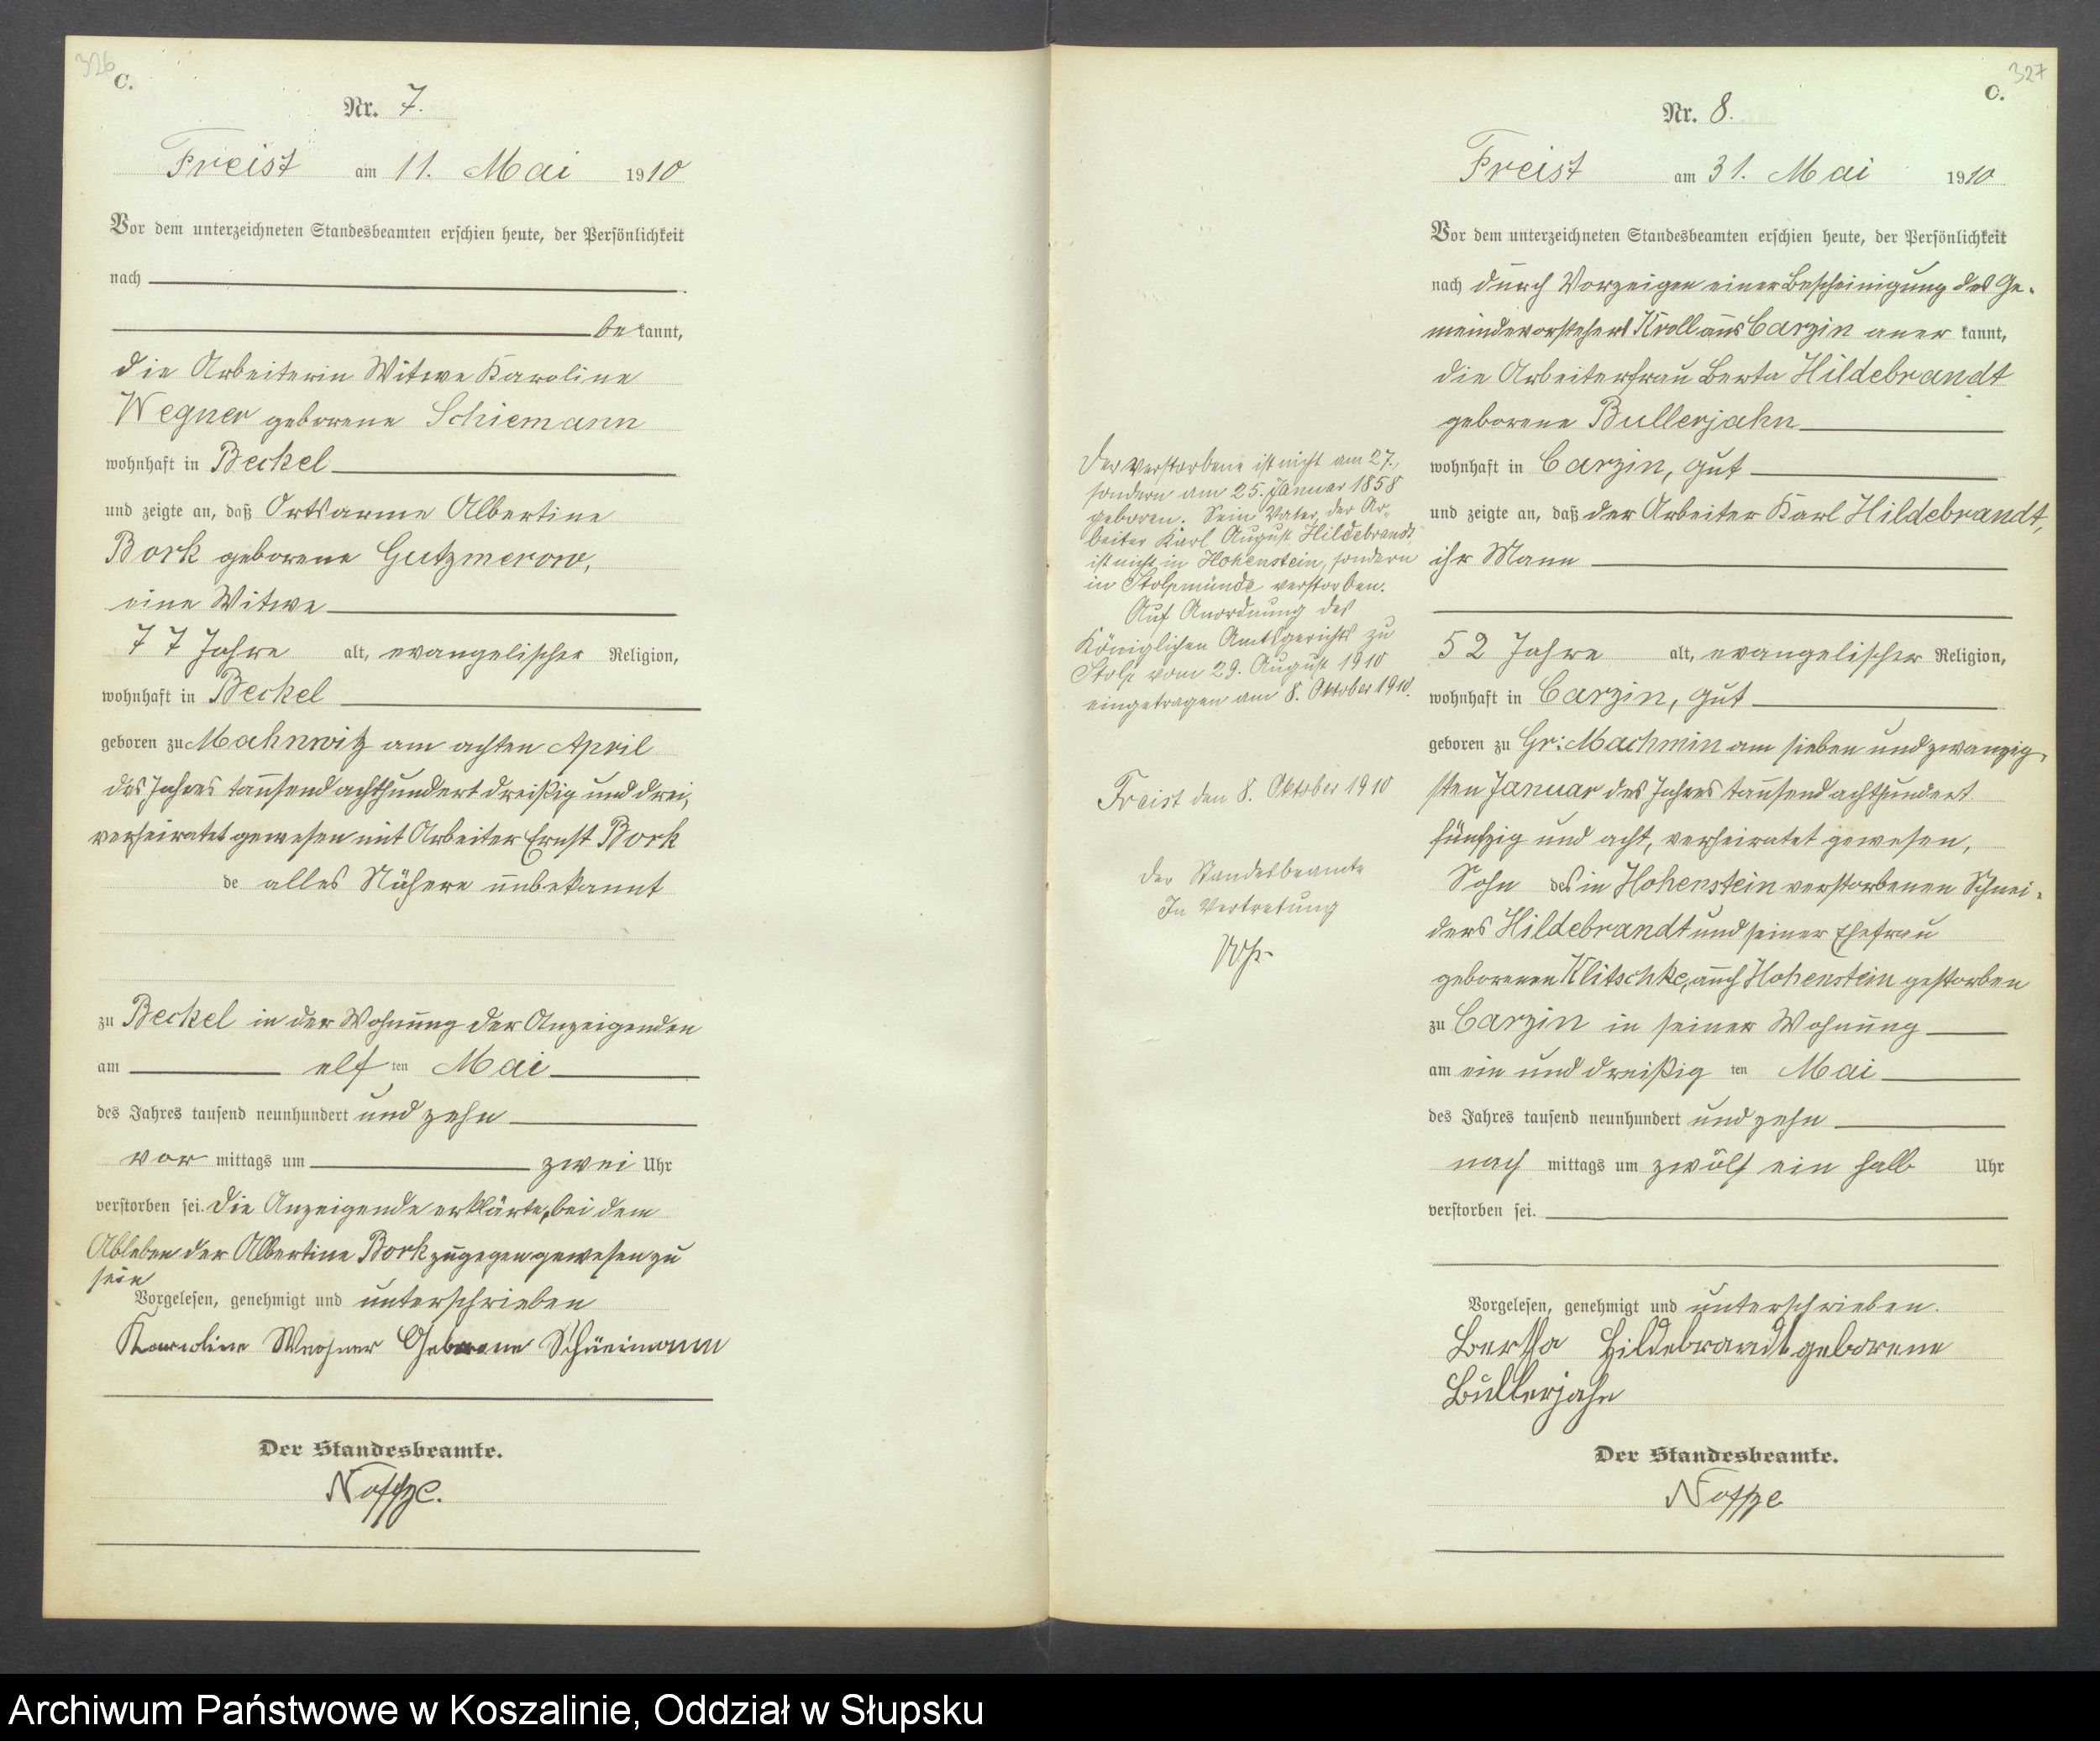 326
C.
Nr. 7.
Freist am 11. Mai 1910
Vor dem unterzeichneten Standesbeamten erschien heute, der Persönlichkeit
nach
be kannt,
die Arbeiterin Witwe Karoline
Wegner geborene Schiemann
wohnhaft in Beckel
und zeigte an, daß Ortsarme Albertine
Bork geborene Gutzmerow,
eine Witwe
77 Jahre alt, evangelischer Religion,
wohnhaft in Beckel
geboren zu Mahnwitz am achten April
des Jahres tausend achthundert dreißig und drei,
verheiratet gewesen mit Arbeiter Ernst Bork
de alles Nähere unbekannt
zu Beckel in der Wohnung der Anzeigenden
am elf ten Mai
des Jahres tausend neunhundert und zehn
vor mittags um zwei Uhr
verstorben sei. Die Anzeigende erklärte, bei dem
Ableben der Albertine Bork zugegen gewesen zu
sein
Vorgelesen, genehmigt und unterschrieben
Karoline Wegner Geborene
Der Standesbeamte.
327
C.
Nr. 8.
Freist am 31. Mai 1910
Vor dem unterzeichneten Standesbeamten erschien heute, der Persönlichkeit
nach durch Vorzeigen einer Bescheinigung des Ge-
meindevorstehers Kroll aus Carzin aner kannt,
die Arbeiterfrau Berta Hildebrandt
geborene Bullerjahn
wohnhaft in Carzin, Gut
und zeigte an, daß der Arbeiter Karl Hildebrandt,
ihr Mann
52 Jahre alt, evangelischer Religion,
wohnhaft in Carzin, Gut
geboren zu Gr: Machmin am sieben und zwanzig-
sten Januar des Jahres tausend achthundert
fünfzig und acht, verheiratet gewesen,
Sohn des in Hohenstein verstorbenen Schnei-
ders Hildebrandt und seiner Ehefrau
geborenen Klitschke, auch Hohenstein gestorben
zu Carzin in seiner Wohnung
am ein und dreißig ten Mai
des Jahres tausend neunhundert und zehn
nach mittags um zwölf ein halb Uhr
verstorben sei.
Vorgelesen, genehmigt und unterschrieben.
Bertha Hildebrandt geborene
Bullerjahn
Der Standesbeamte.
Der Verstorbene ist nicht am 27.,
sondern am 25. Januar 1858
geboren. Sein Vater, der Ar-
beiter Karl August Hildebrandt
ist nicht in Hohenstein, sondern
in Stolpmünde verstorben.
Auf Anordnung des
Königlichen Amtsgerichts zu
Stolp vom 29. August 1910
eingetragen am 8. Oktober 1910.
Freist den 8. Oktober 1910
Der Standesbeamte
In Vertretung
Archiwum Państwowe w Koszalinie, Oddział w Słupsku